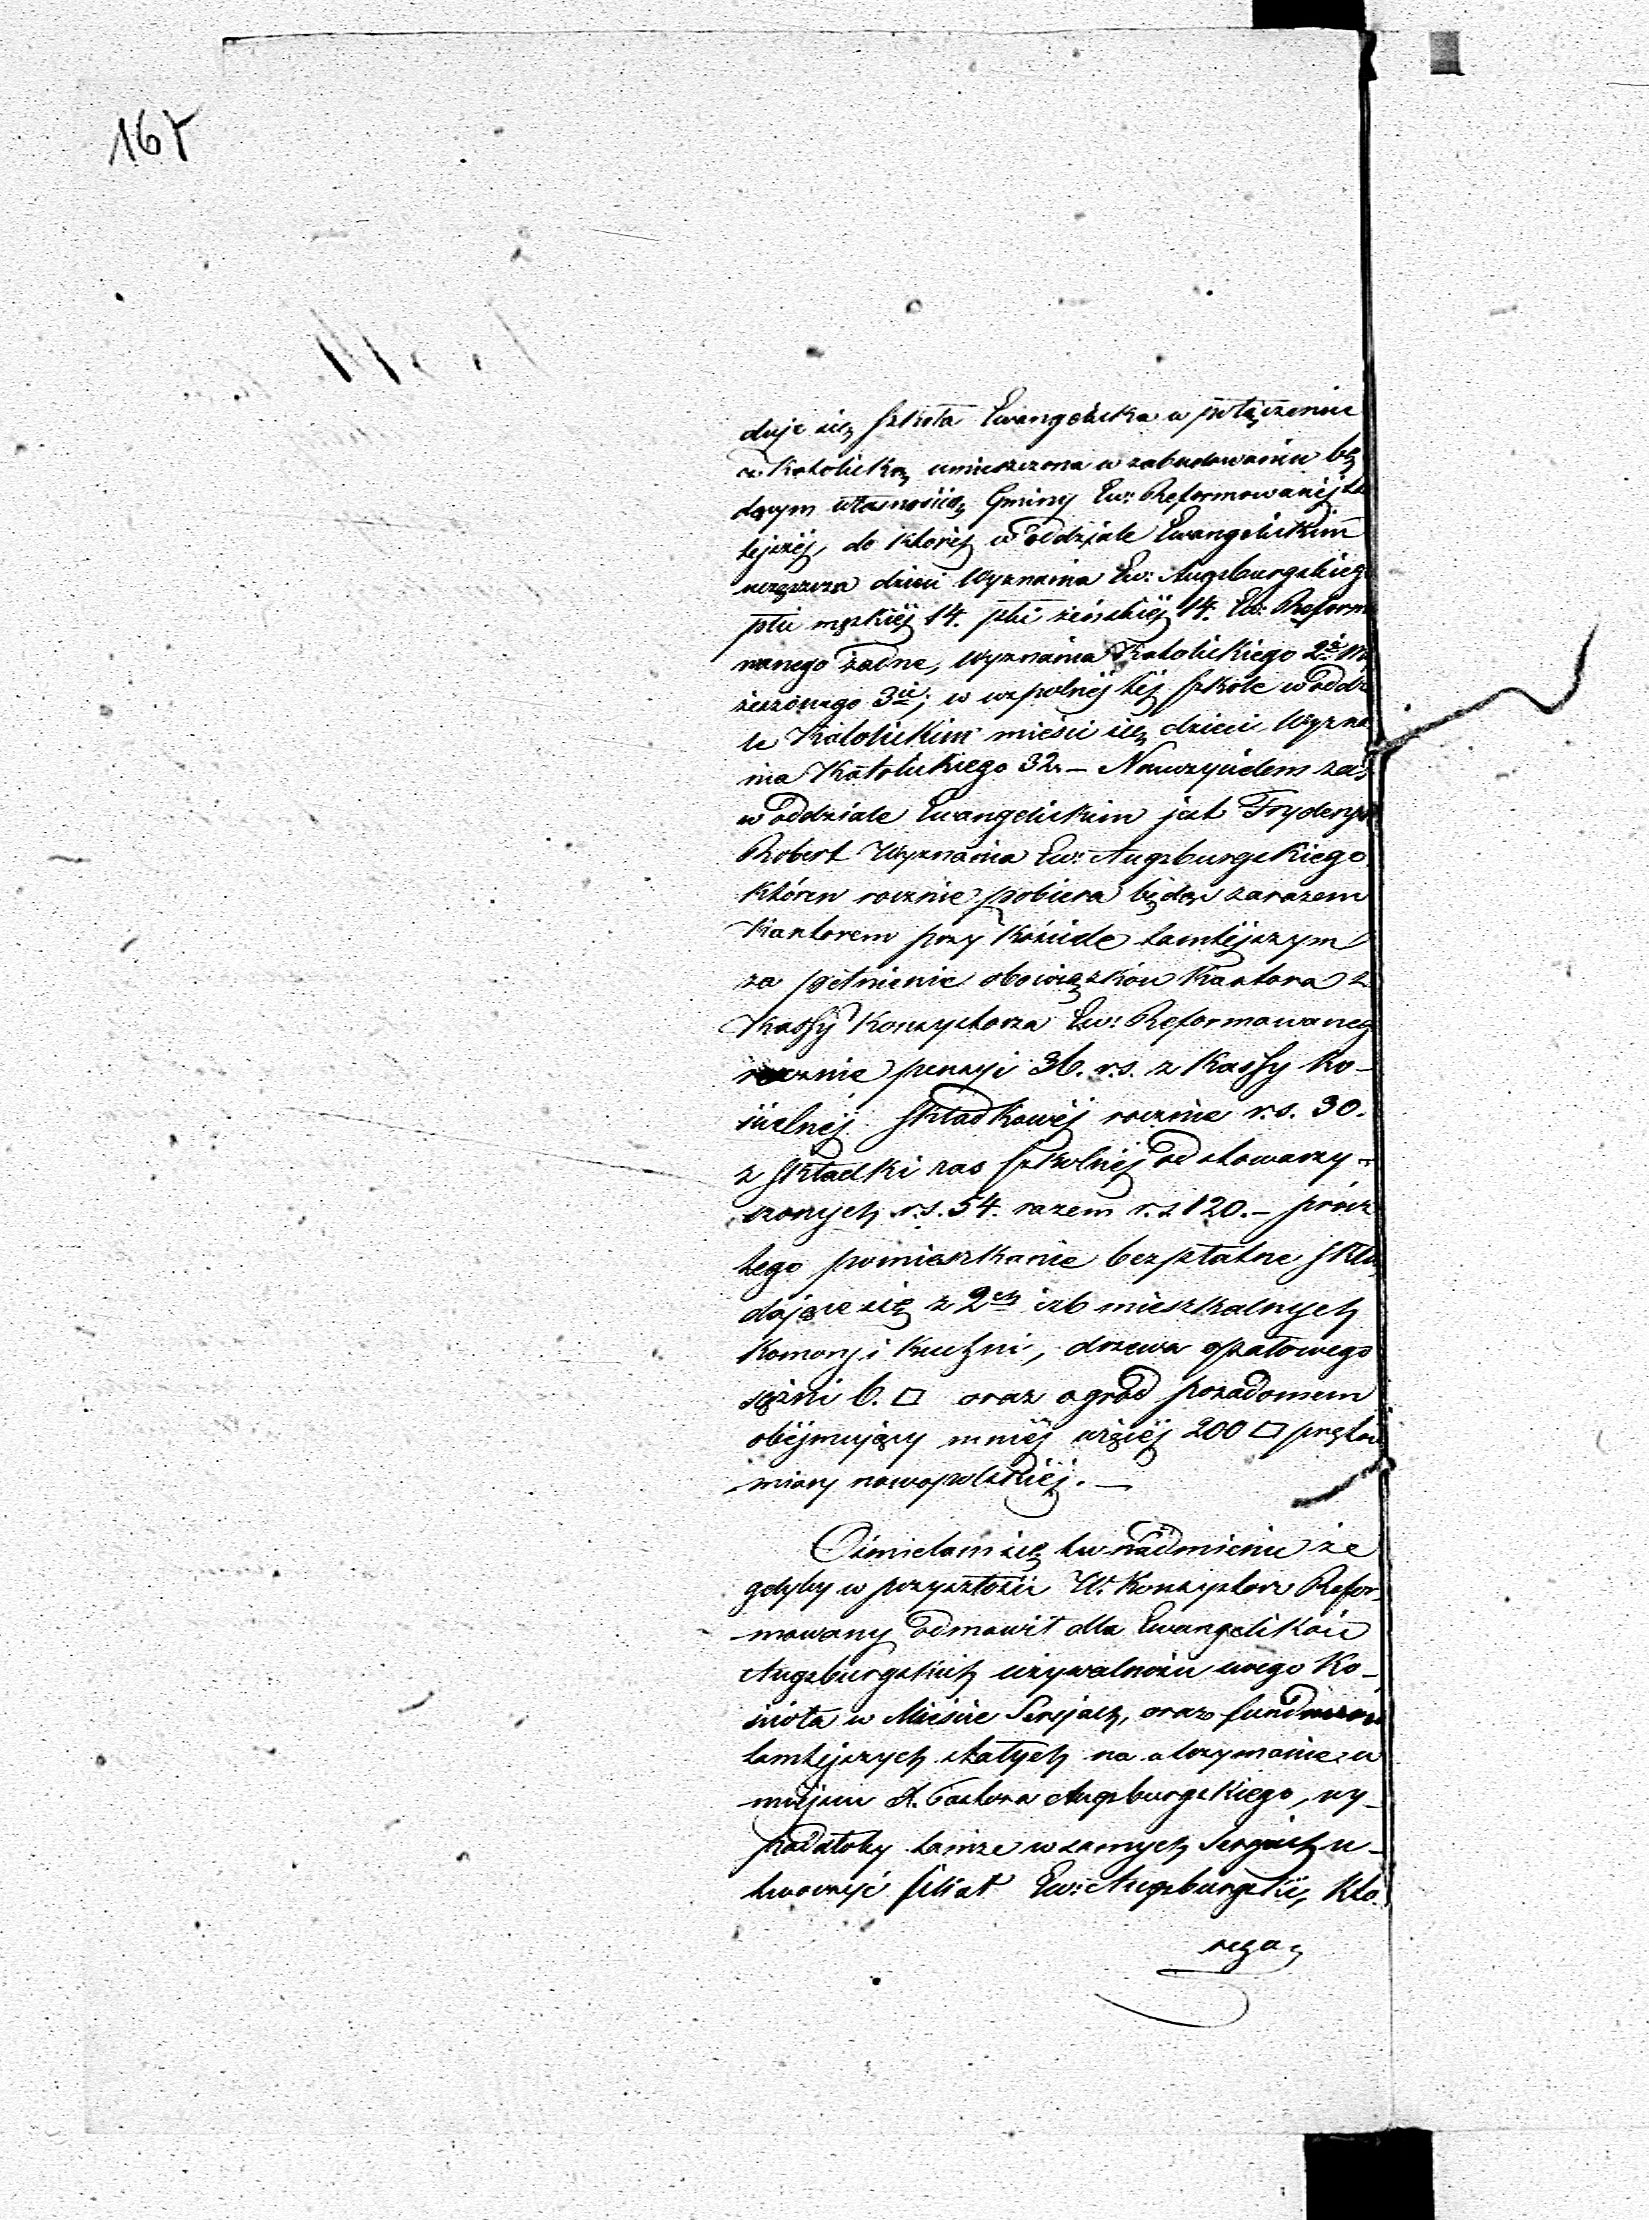 167
duje się szkoła Ewangelicka w połączeniu
z Katolicką umieszczona w zabudowaniu bę
dącym własnością Gminy Ew: Reformowanéj tu
tejszéj, do któréj w oddziale Ewangelickim
uczęszcza dzieci Wyznania Ew: Augsburgskiego
płci męzkiéj 14. płci żeńskiéj 14. Ew: Reform
wanego żadne, Wyznania Katolickiego 2je
żeszowego 3ie; w wspolnéj téj szkole w oddz
le Katolickim mieści się dzieci Wyzna
nia Katolickiego 32. – Nauczycielem zaś
w oddziale Ewangelickim jest Fryderyk
Robert Wyznania Ew: Augsburgskiego
któren rocznie pobiera będąc zarazem
Kantorem przy Kościele tamtéjszym
za pełnienie obowiązków Kantora z
Kassy Konsystorza Ew: Reformowaneg
rocznie pensyi 36. r.s. z Kassy Ko-
ścielnéj składkowéj rocznie r.s. 30.
z składki zas szkolnéj od stowarzy-
szonych r.s. 54. razem r.s. 120. – prócz
tego pomieszkanie bezpłatne skła
dające się z 2ch izb mieszkalnych
Komory i kuchni, drzewa opałowego
sążni 6. □ oraz ogród pozadomem
obéjmujący mniéj więcéj 200 □ prętów
miary nowopolskiéj. –
Ośmielam się tu nadmienić że
gdyby w przyszłości W. Konsystorz Refor-
mowany odmowił dla Ewangelików
Augsburgskich używalności swego Ko-
ścioła w Mieście Serejach, oraz
tamtéjszych stałych na utrzymanie w
miéjscu X. Pastora Augsburgskiego, wy-
padałoby tamże w samych Serejach u-
tworzyć filiał Ew: Augsburgski, któ-
rego